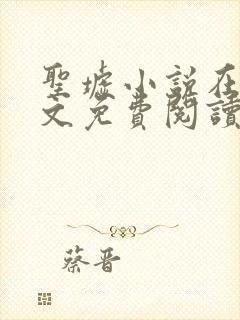 聖墟小說在
文免費閱讀
蔡晋